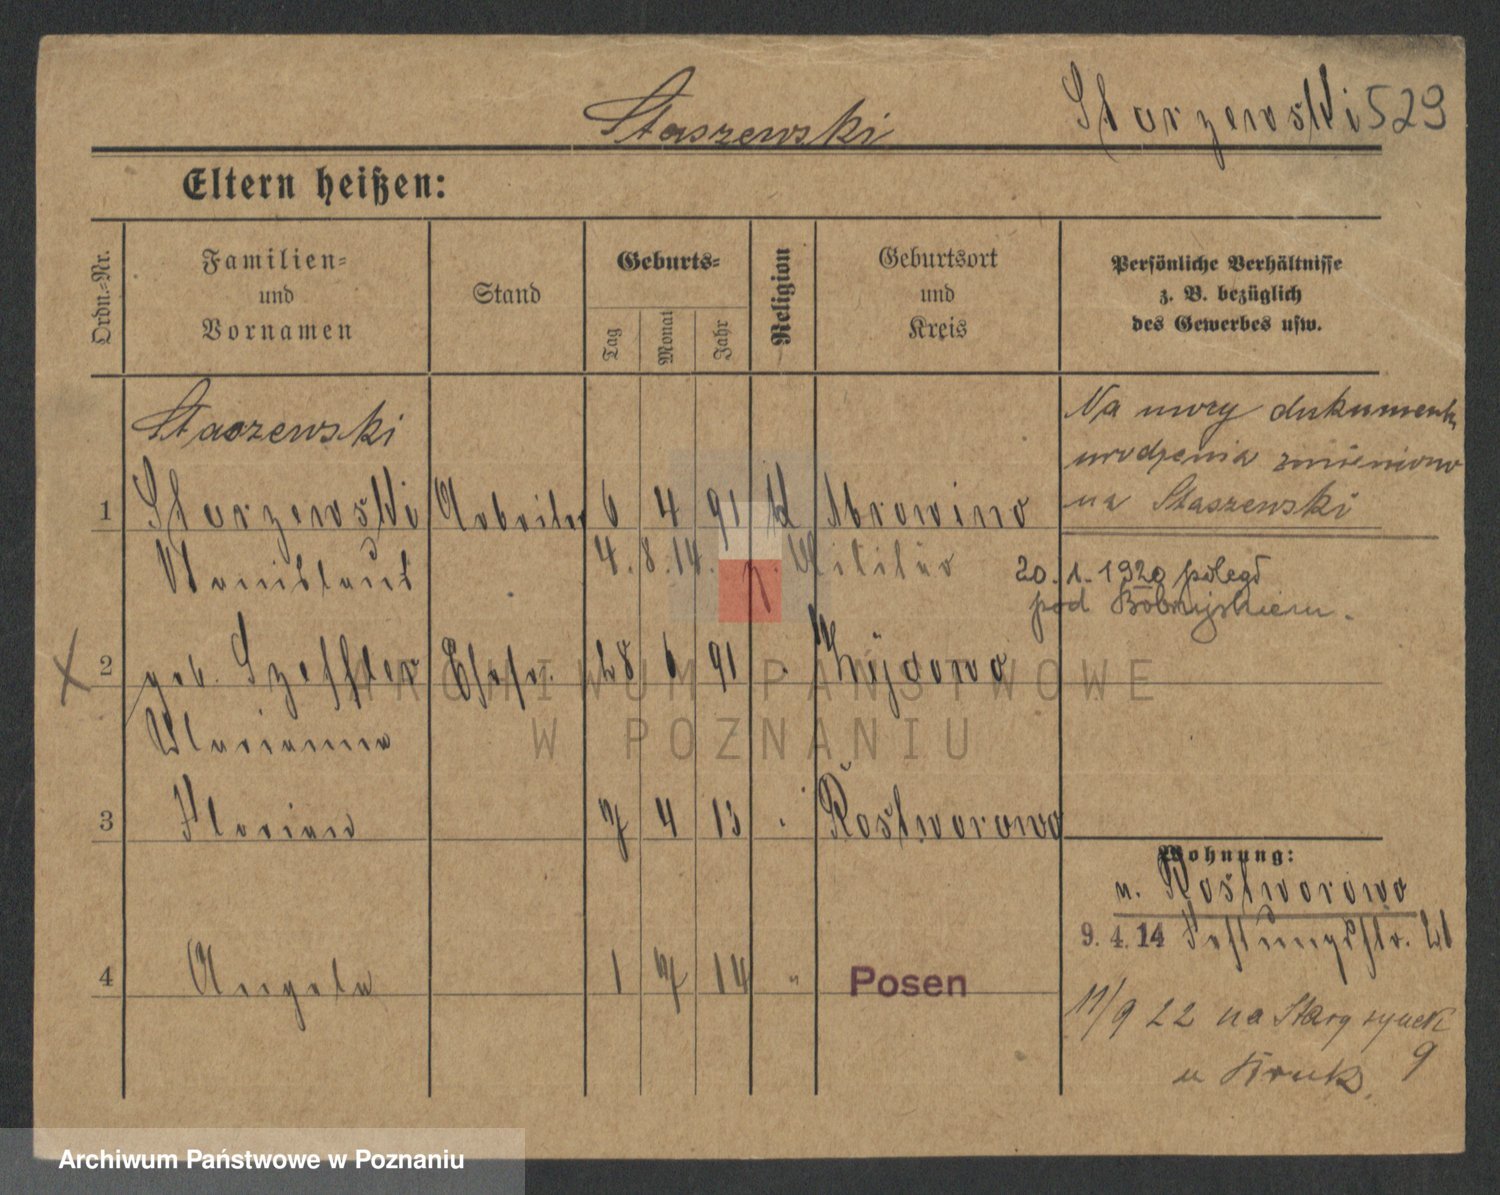 Staszewski
Starzewski 529
Eltern heißen:
Ordn.-Nr.
Familien-
und
Vornamen
Stand
Geburts-
Tag
Monat
Jahr
Religion
Geburtsort
und
Kreis
Persönliche Verhältnisse
z. B. bezüglich
des Gewerbes usw.
Staszewski
Na mocy dokumentu
urodzenia zmieniono
na Staszewski
1 Starzewski Arbeiter 6 4 91 k Mrowino
Stanislaus 4.8.14. z. Militär
20.1.1920 poległ
pod Bobrujskiem.
2 geb. Szeffler Ehefr. 28 6 91 Kiÿowo
Marianna
3 Florian 7 4 13 Rostworowo
Wohnung:
v. Rostworowo
9. 4. 14 Festungsstr. 21
4 Angela 1 7 14 " Posen
11/9 22 na Stary rynek
9
u Kruk
ARCHIWUM PAŃSTWOWE
W POZNANIU
Archiwum Państwowe w Poznaniu